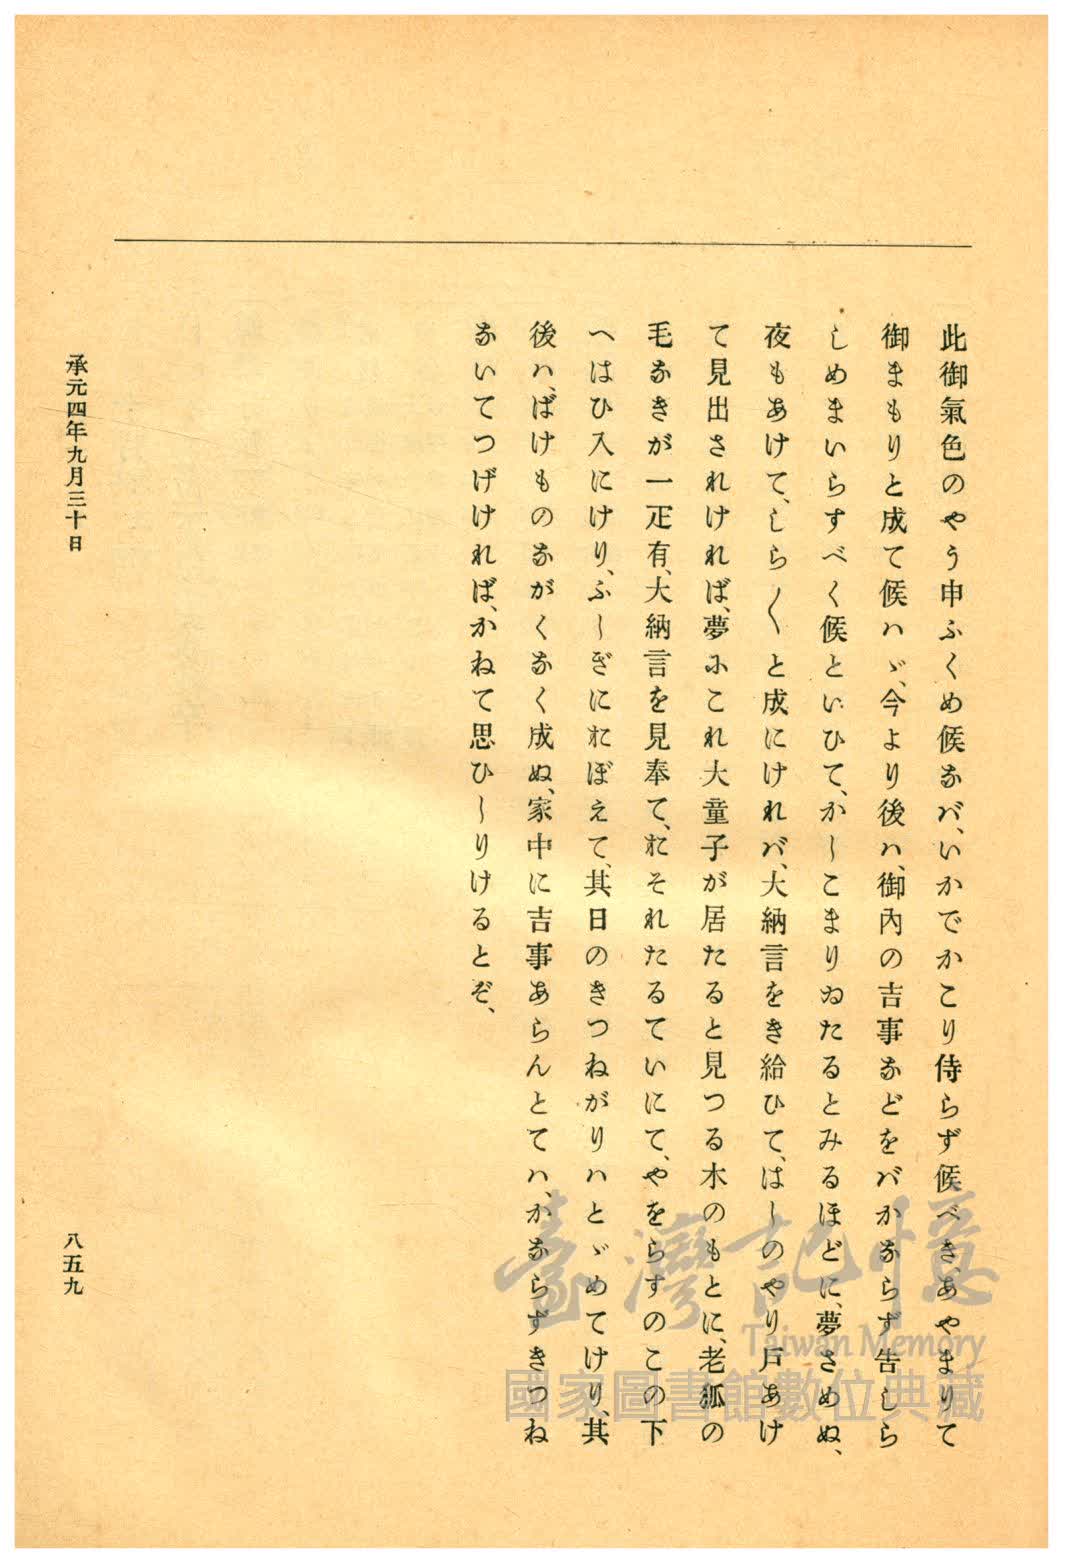 此御氣色のやう申ふくめ候なバ、いかでかこり侍らず候べき、あやまりて
御まもりと成て候ハヾ、今より後ハ、御內の吉事などをバかならず告しら
しめまいらすべく候といひて、かしこまりゐたるとみるほどに、夢さめぬ、
夜もあけて、しら〱と成にけれバ、大納言をき給ひて、はしのやり戶あけ
て見出されければ、夢にこれ大童子が居たると見つる木のもとに、老狐の
毛なきが一疋有、大納言を見奉て、おそれたるていにて、やをらすのこの下
へはひ入にけり、ふしぎにおぼえて、其日のきつねがりハとゞめてけり、其
後ハ、ばけものながくなく成ぬ、家中に吉事あらんとてハ、かならずきつね
ないてつげければ、かねて思ひしりけるとぞ、
承元四年九月三十日
八五九
臺灣記憶
Taiwan Memory
國家圖書館數位典藏